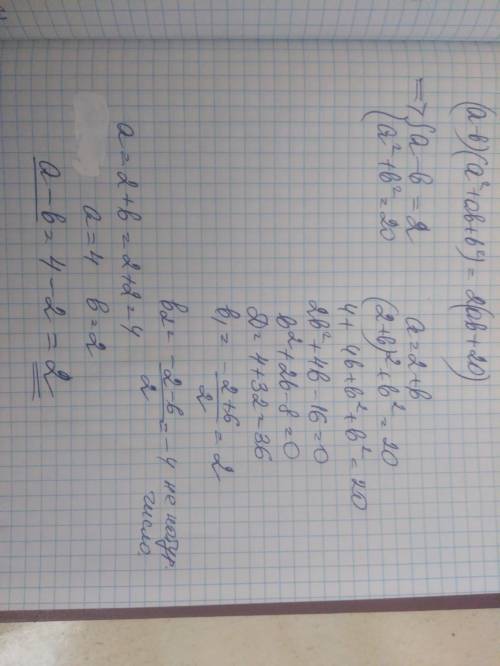 (a-b)(a²+ab+b²)=2(ab+20)
=7 { a-b=2
{ a²+b²=20
a=2+b
(2+b)²+b²=20
4+4b+b²+b²=20
2b²+4b-16=0
b²+2b-8=0
D=4+32=36
b₁= (-2+6)/2 =2
b₂= (-2-6)/2 =-4 не натур. число
a=2+b=2+2=4
a=4 b=2
a-b=4-2=2